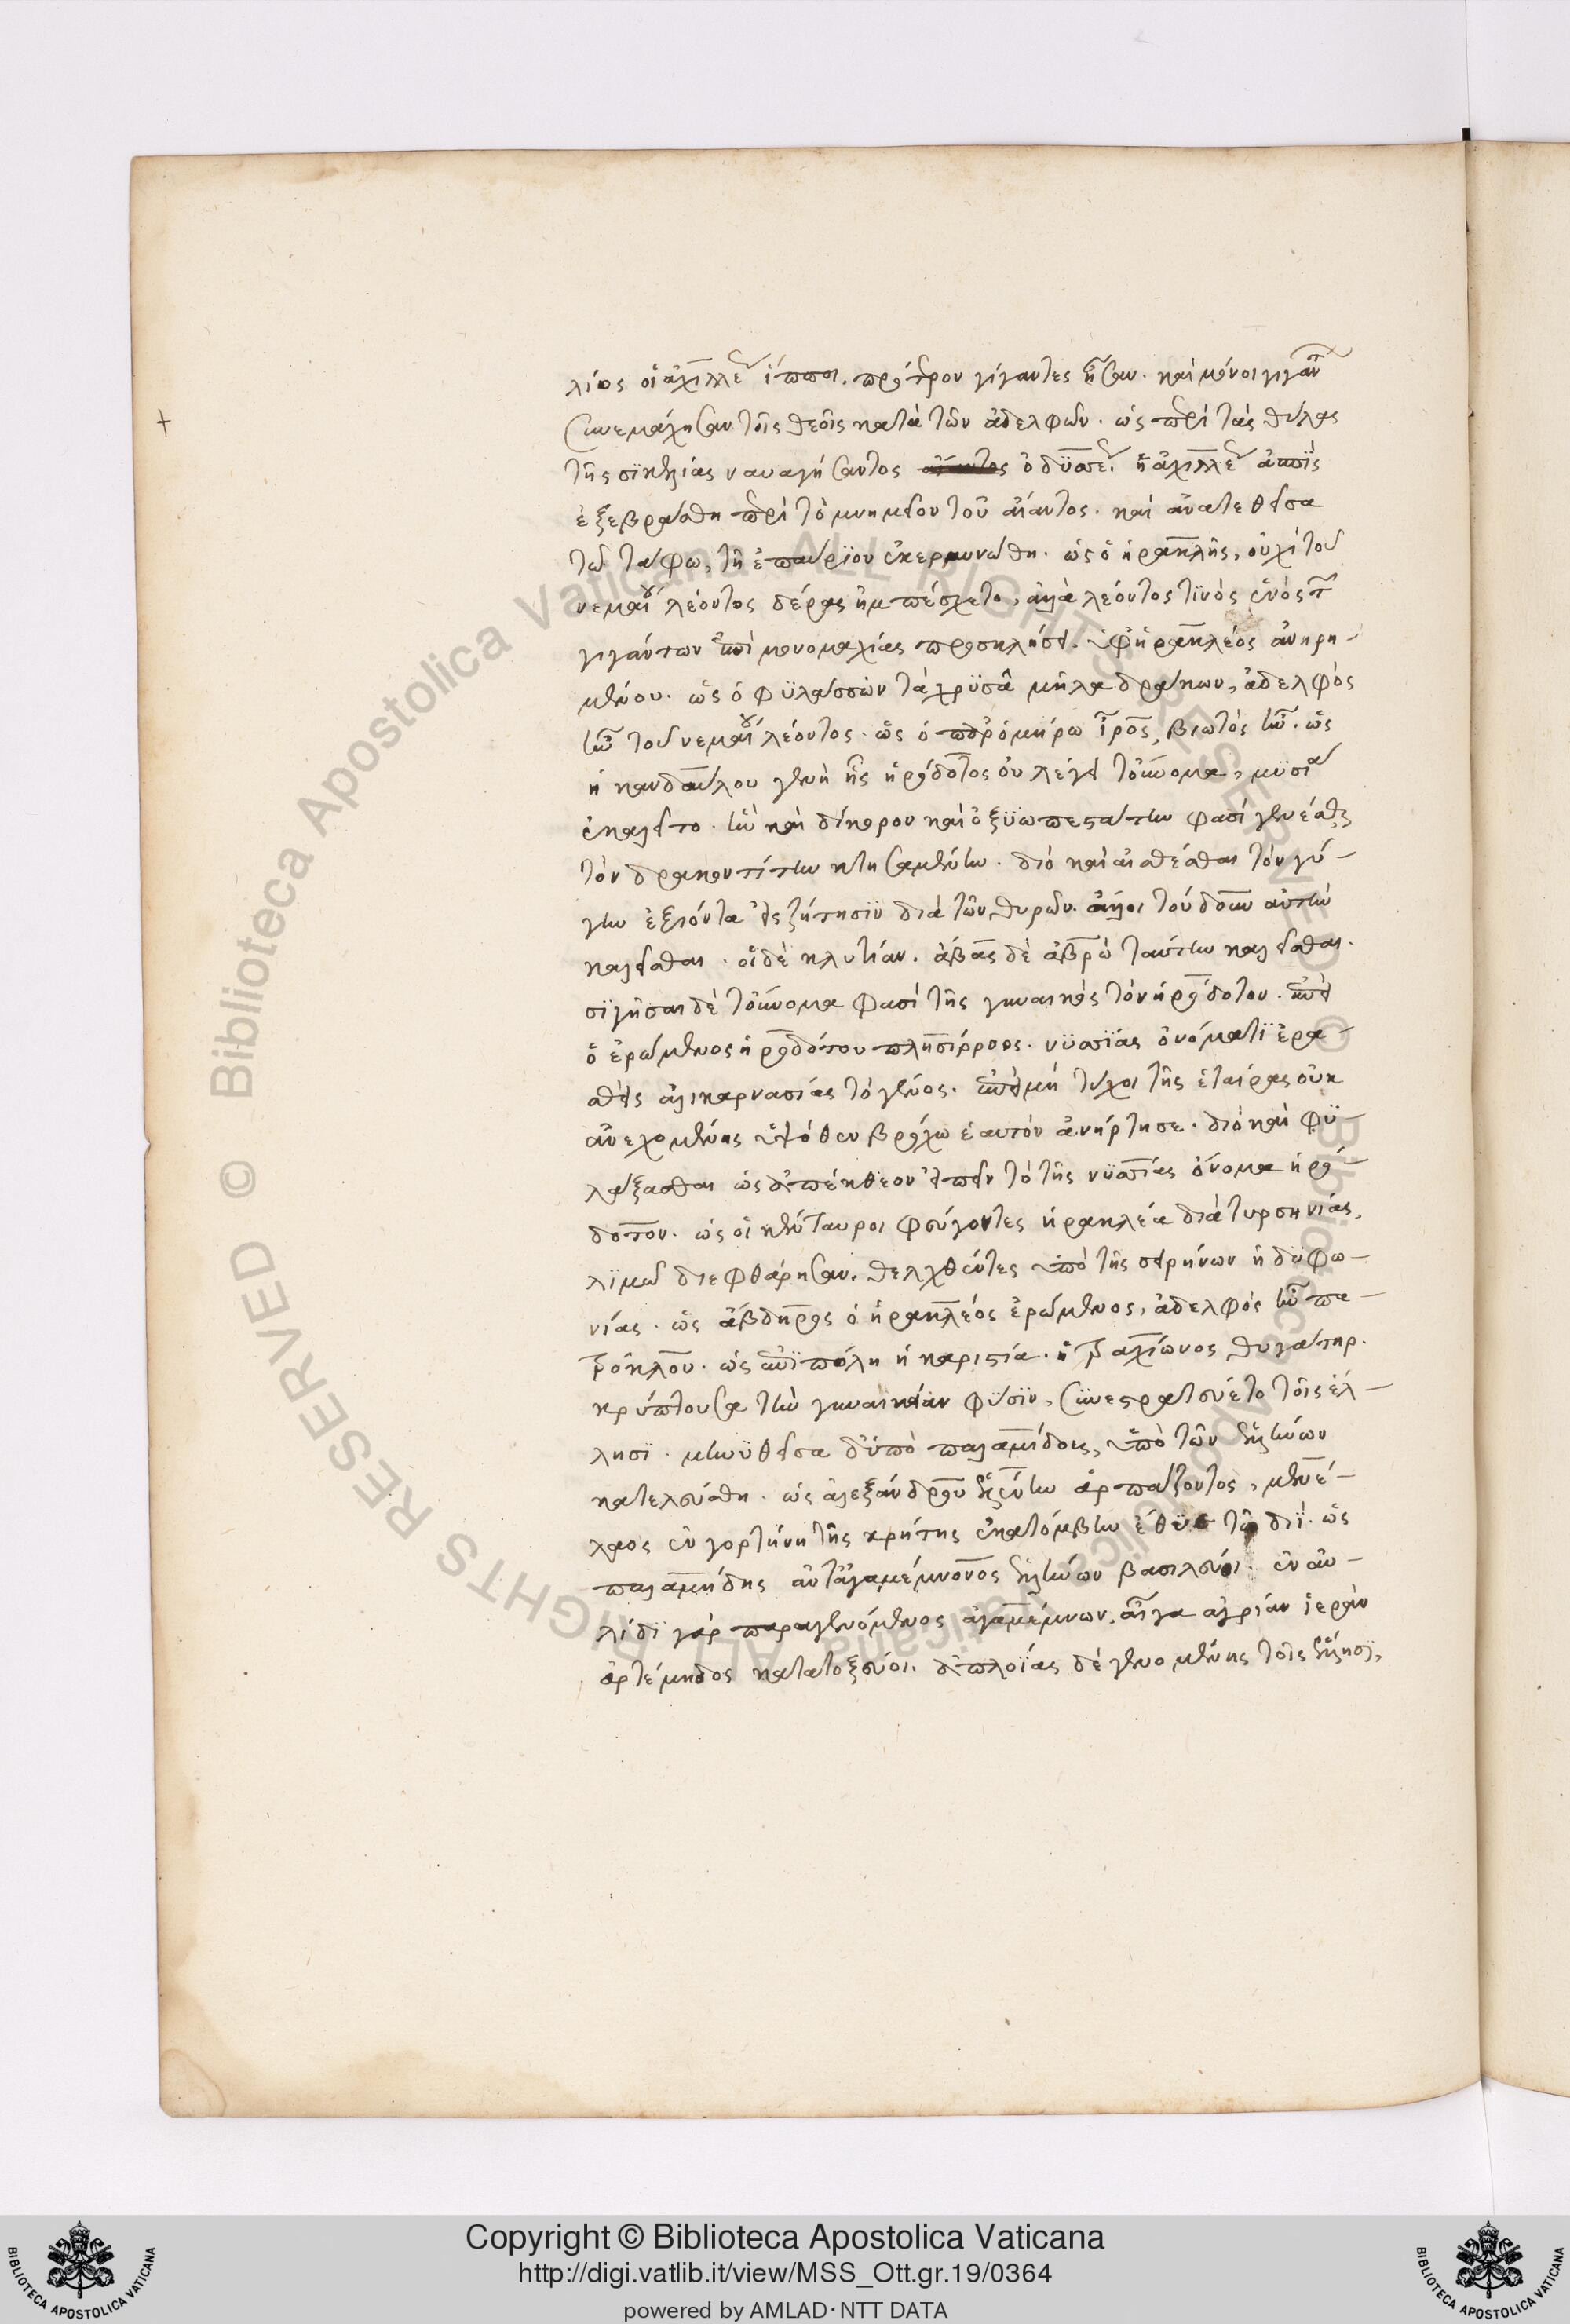 λίος οἱ ἀχιλλέως ἵπποι. πρότερον γίγαντες ἦσαν. καὶ μόνοι γιγάντων
συνεμάχησαν τοῖς θεοῖς κατὰ τῶν ἀδελφῶν. ὡς περὶ τὰς θύλας
τῆς σϊκελίας ναυαγήσαντος ὀδϋσσέως ἡ ἀχιλλέως ἀσπὶς
ἐξεβράσθη περὶ τὸ μνημεῖον τοῦ αἴαντος. καὶ ἀνατεθεῖσα
τῷ τάφω, τῆ ἐπαύρϊον ἐκεραυνώθη. ὡς ὁ ἡρακλῆς, οὐχὶ τοῦ
νεμαίου λέοντος δέρας ἠμπέσχετο, ἀλλὰ λέοντος τϊνὸς ἑνὸς τῶν
γιγάντων ἐπὶ μονομαχίας προσκλήσει. ὑφ' ἡρακλέος ἀνηρη-
μένου. ὡς ὁ φϋλάσσων τὰ χρϋσᾶ μῆλα δράκων, ἀδελφὸς
ἦν τοῦ νεμαίου λέοντος. ὡς ὁ παρ' ὁμήρω ἶρος, βιωτὸς ἦν. ὡς
ἡ κανδαύλου γυνὴ ἧς ἡρόδοτος οὐ λέγει τοὔνομα, μϋσία
ἐκαλεῖτο. ἣν καὶ δίκορον καὶ ὀξϋωπεστάτην φασὶ γενέσθαι
τὸν δρακοντίτην κτησαμένην. διὸ καὶ αἰσθέσθαι τὸν γύ-
γην ἐξϊόντα διὰ τῶν θυρῶν. ἄλλοι τούδουν αὐτὴν
καλεῖσθαι. οἱ δὲ κλυτίαν. ἄβας δὲ ἀβρὼ ταύτην καλεῖσθαι.
σϊγῆσαι δὲ τοὔνομα φασὶ τῆς γυναικὸς τὸν ἡρόδοτον. ἐπεὶ
ὁ ἐρώμενος ἡροδότου πλησίρροος. νϋσϊίας ὀνόματϊ ἐρα-
σθεὶς ἁλικαρνασίας τὸ γένος. ἐπεὶ μὴ τύχοι τῆς ἑταίρας οὐκ
ἀνεχομένης βρόχω ἑαυτὸν ἀνήρτησε. διὸ καὶ φϋ-
λάξασθαι ὡς ἀπέχθεον εἰπεῖν τὸ τῆς νϋσίας ὄνομα ἡρό-
δοτον. ὡς οἱ κένταυροι φεύγοντες ἡρακλέα διὰ τυρσηνίας,
λϊμῶ διεφθάρησαν. θελχθέντες ὑπὸ τῆς σειρήνων ἡδϋφω-
νίας. ὡς ἄβδηρος ὁ ἡρακλέος ἐρώμενος, ἀδελφὸς ἦν πα-
τρόκλου. ὡς ἐπϊπόλη ἡ καριστία. ἡ τραχίωνος θυγάτηρ.
κρύπτουσα τὴν γυναικείαν φύσϊν, συνεστρατεύετο τοῖς ἕλ-
λησϊ. μηνϋθεῖσα δ' ὑπὸ παλαμίδους, ὑπὸ τῶν ἑλλήνων
κατελεύσθη. ὡς ἀλεξάνδρου ἑλένην ἁρπάζοντος, μενέ-
λαος ἐν γορτύνη τῆς κρήτης ἑκατόμβην ἔθϋε τῷ διΐ. ὡς
παλαμήδης ἀντ' ἀγαμέμνονος ἑλλήνων βασιλεύοι. ἐν αὐ-
λίδϊ γὰρ παραγενόμενος ἀγαμέμνων, αἶγα ἀγρίαν ἱερὰν
ἀρτέμηδος κατατοξεύοι. ἀπλοΐας δὲ γενομένης τοῖς ἕλλησϊ,